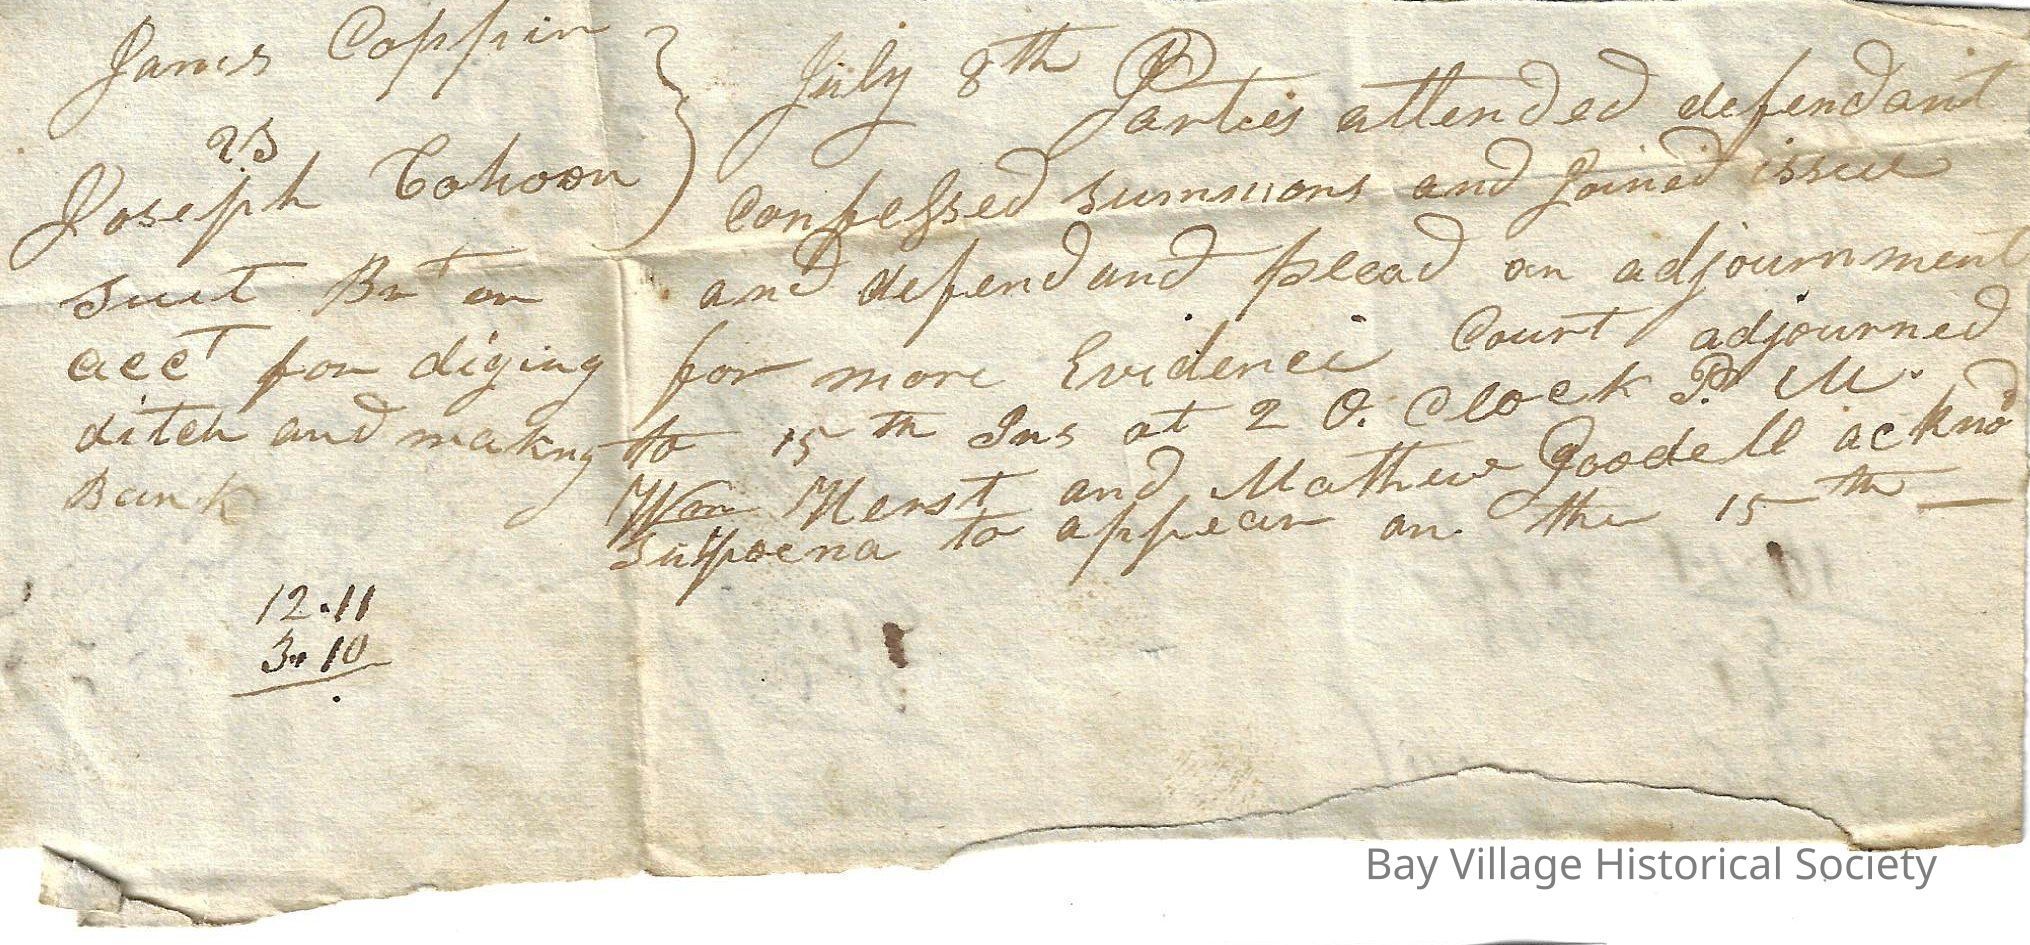 James Coppin
vs
Joseph Cahoon
suit Brt on
acct for diging
ditch and making
Bank
12.11
3.10
July 8th Parties attended defendant
confessed summons and Joined issue
and defendand plead an adjournment
for more Evidence Court adjourned
to 15th Ins at 2 O. Clock P. M.
Wm Herst and Mathew Goodell acknd
Supoena to appear on the 15th
Bay Village Historical Society